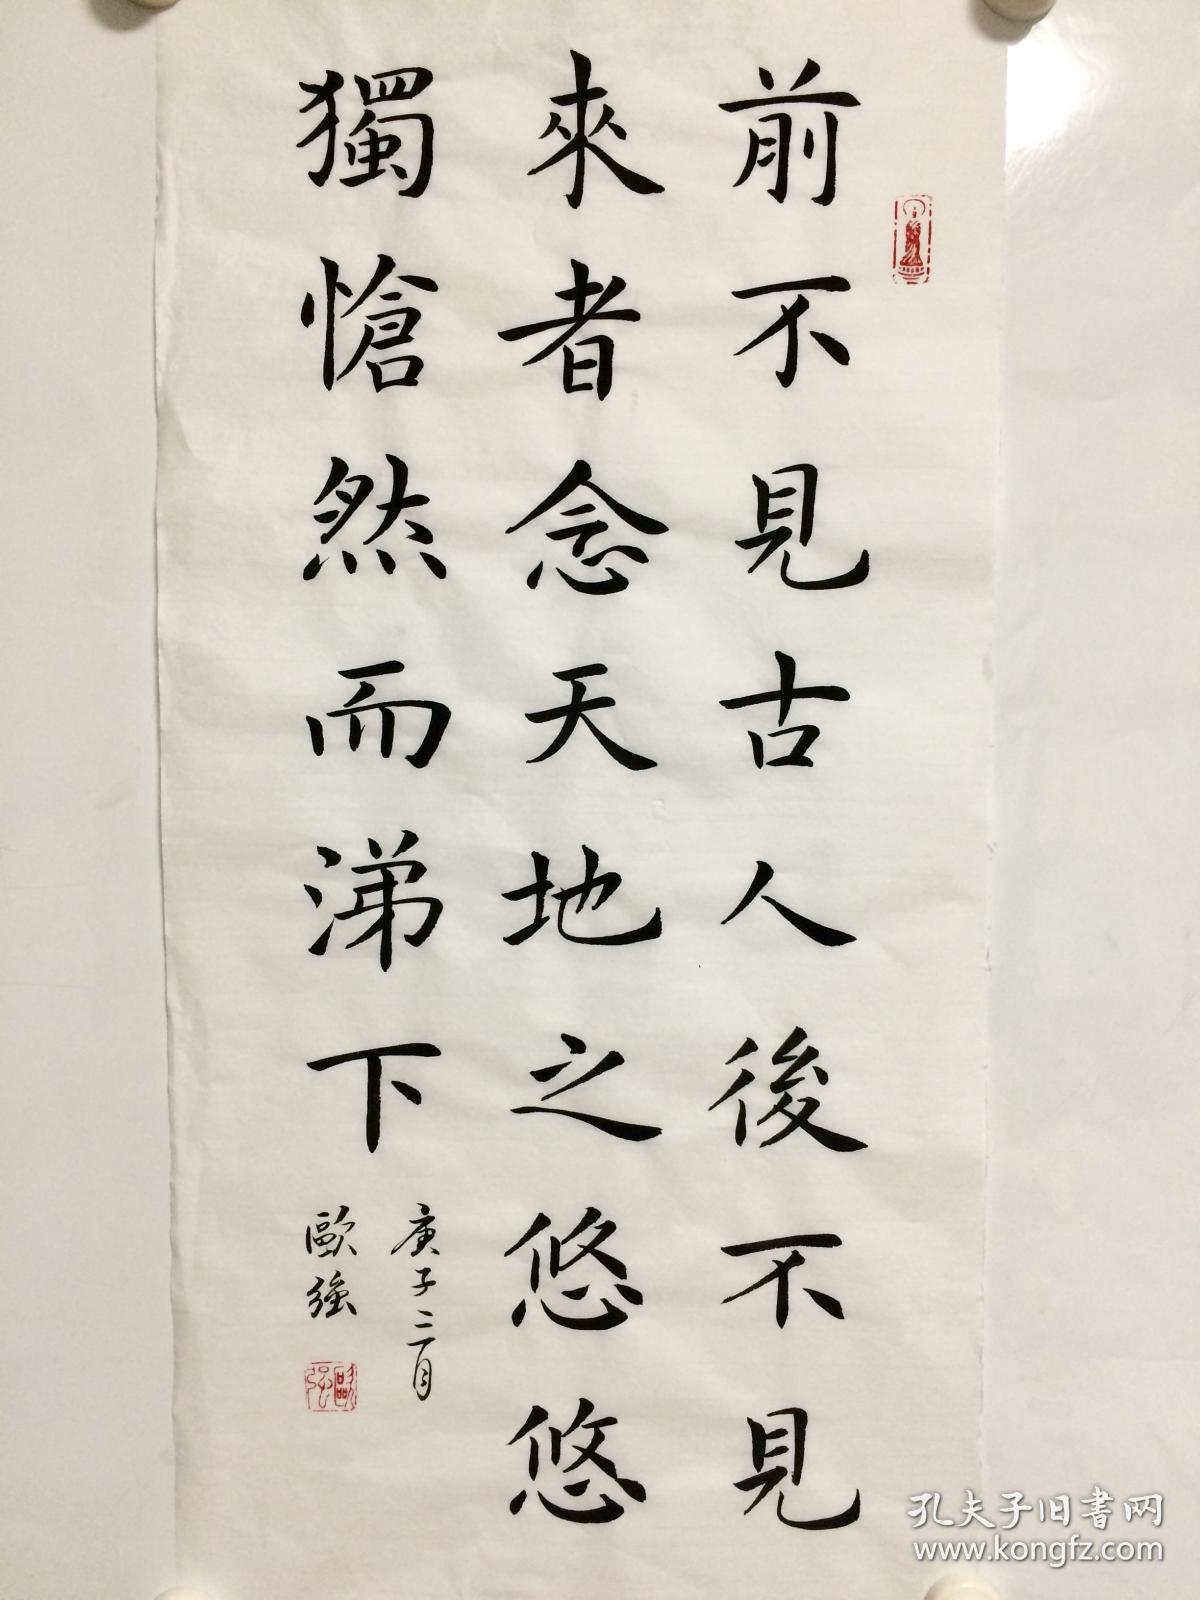 前不見古人後不見
來者念天地之悠悠
獨愴然而涕下
庚子二月
歐強
歐強
孔夫子旧书网
www.kongfz.com